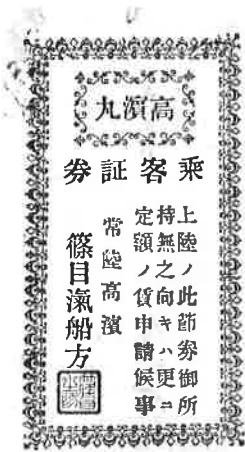 高濱丸
乗客証券
上陸ノ此節券御所
持無之向キハ更ニ
定額ノ賃申請候事
常陸高濱
篠目氣船方